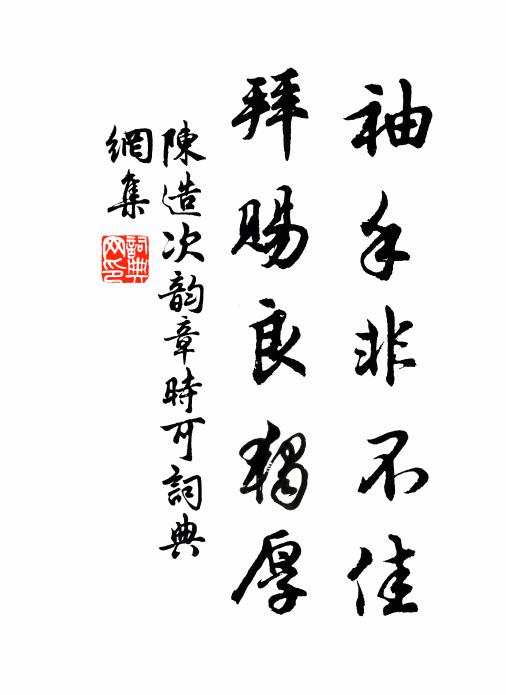 袖手非不佳
拜賜良獨厚
陳造次韵章時可詞典
網集
詞典网印